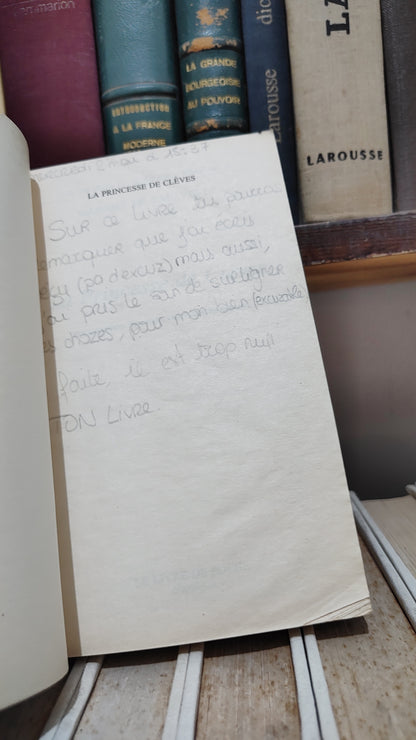 flammarion
INTRODUCTION
A LA FRANCE
MODERNE
LA GRANDE
BOURGEOISIE
AU POUVOIR
dic
Larousse
LA
LAROUSSE
2 mai à 15:37
LA PRINCESSE DE CLÈVES
SUR ce LIVRE tu pourra
remarquer que j'ai écris
(pa d'excuz) mais aussi,
pris le soin de surligner
chozes, pour mon bien (excuzable)
faite, il est trop nuil
TON LIVRE.